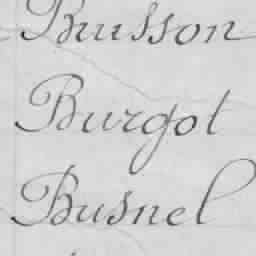 Buisson
Burgot
Busnel